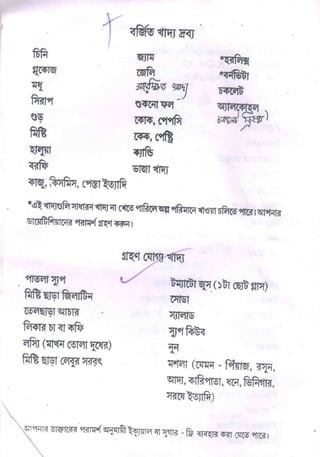 বর্জিত খাদ্য দ্রব্য
চিনি জ্যাম *হরলিক্স
গ্লুকোজ জেলি *বর্নভিটা
মধু চকলেট
সিরাপ শুকনো ফল অ্যালকোহল
গুড় কোক, পেপসি
মিষ্টি কেক, পেস্ট্রি
হালুয়া ক্যান্ডি
বরফি ভাজা খাদ্য
কাজু, কিসমিস, পেস্তা ইত্যাদি
*এই খাদ্যগুলি সাধারন খাদ্য না খেতে পারিলে অল্প পরিমানে খাওয়া চলিতে পারে। আপনার
ডায়েটিশিয়ানের পরামর্শ গ্রহণ করুন।
গ্রহণ যোগ্য খাদ্য
পাতলা স্যুপ টম্যাটো জুস (১টা ছোট গ্লাস)
মিষ্টি ছাড়া জিলাটিন সোডা
তেলছাড়া আচার স্যালাড
লিকার চা বা কফি স্যুপ কিউব
লস্যি (মাখন তোলা দুধের) নুন
মিষ্টি ছাড়া লেবুর সরবৎ মশলা (যেমন - পিঁয়াজ, রসুন,
আদা, কারিপাতা, ধনে, ভিনিগার,
সরষে ইত্যাদি)
আপনার ডাক্তারের পরামর্শ অনুযায়ী ইক্যুয়াল বা সুগার - ফ্রি ব্যবহার করা যেতে পারে।